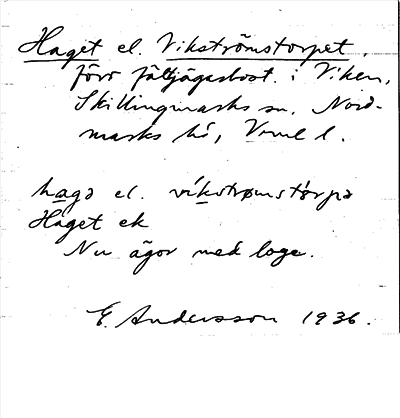 Haget el. Vikströmstorpet,
förr fältjägarbost. i Viken,
Skillingmarks sn, Nord-
marks hd, Vrml l.
hagə el. vikstrømstɔrpə
Haget ek
Nu ägor med loge.
E. Andersson 1936.